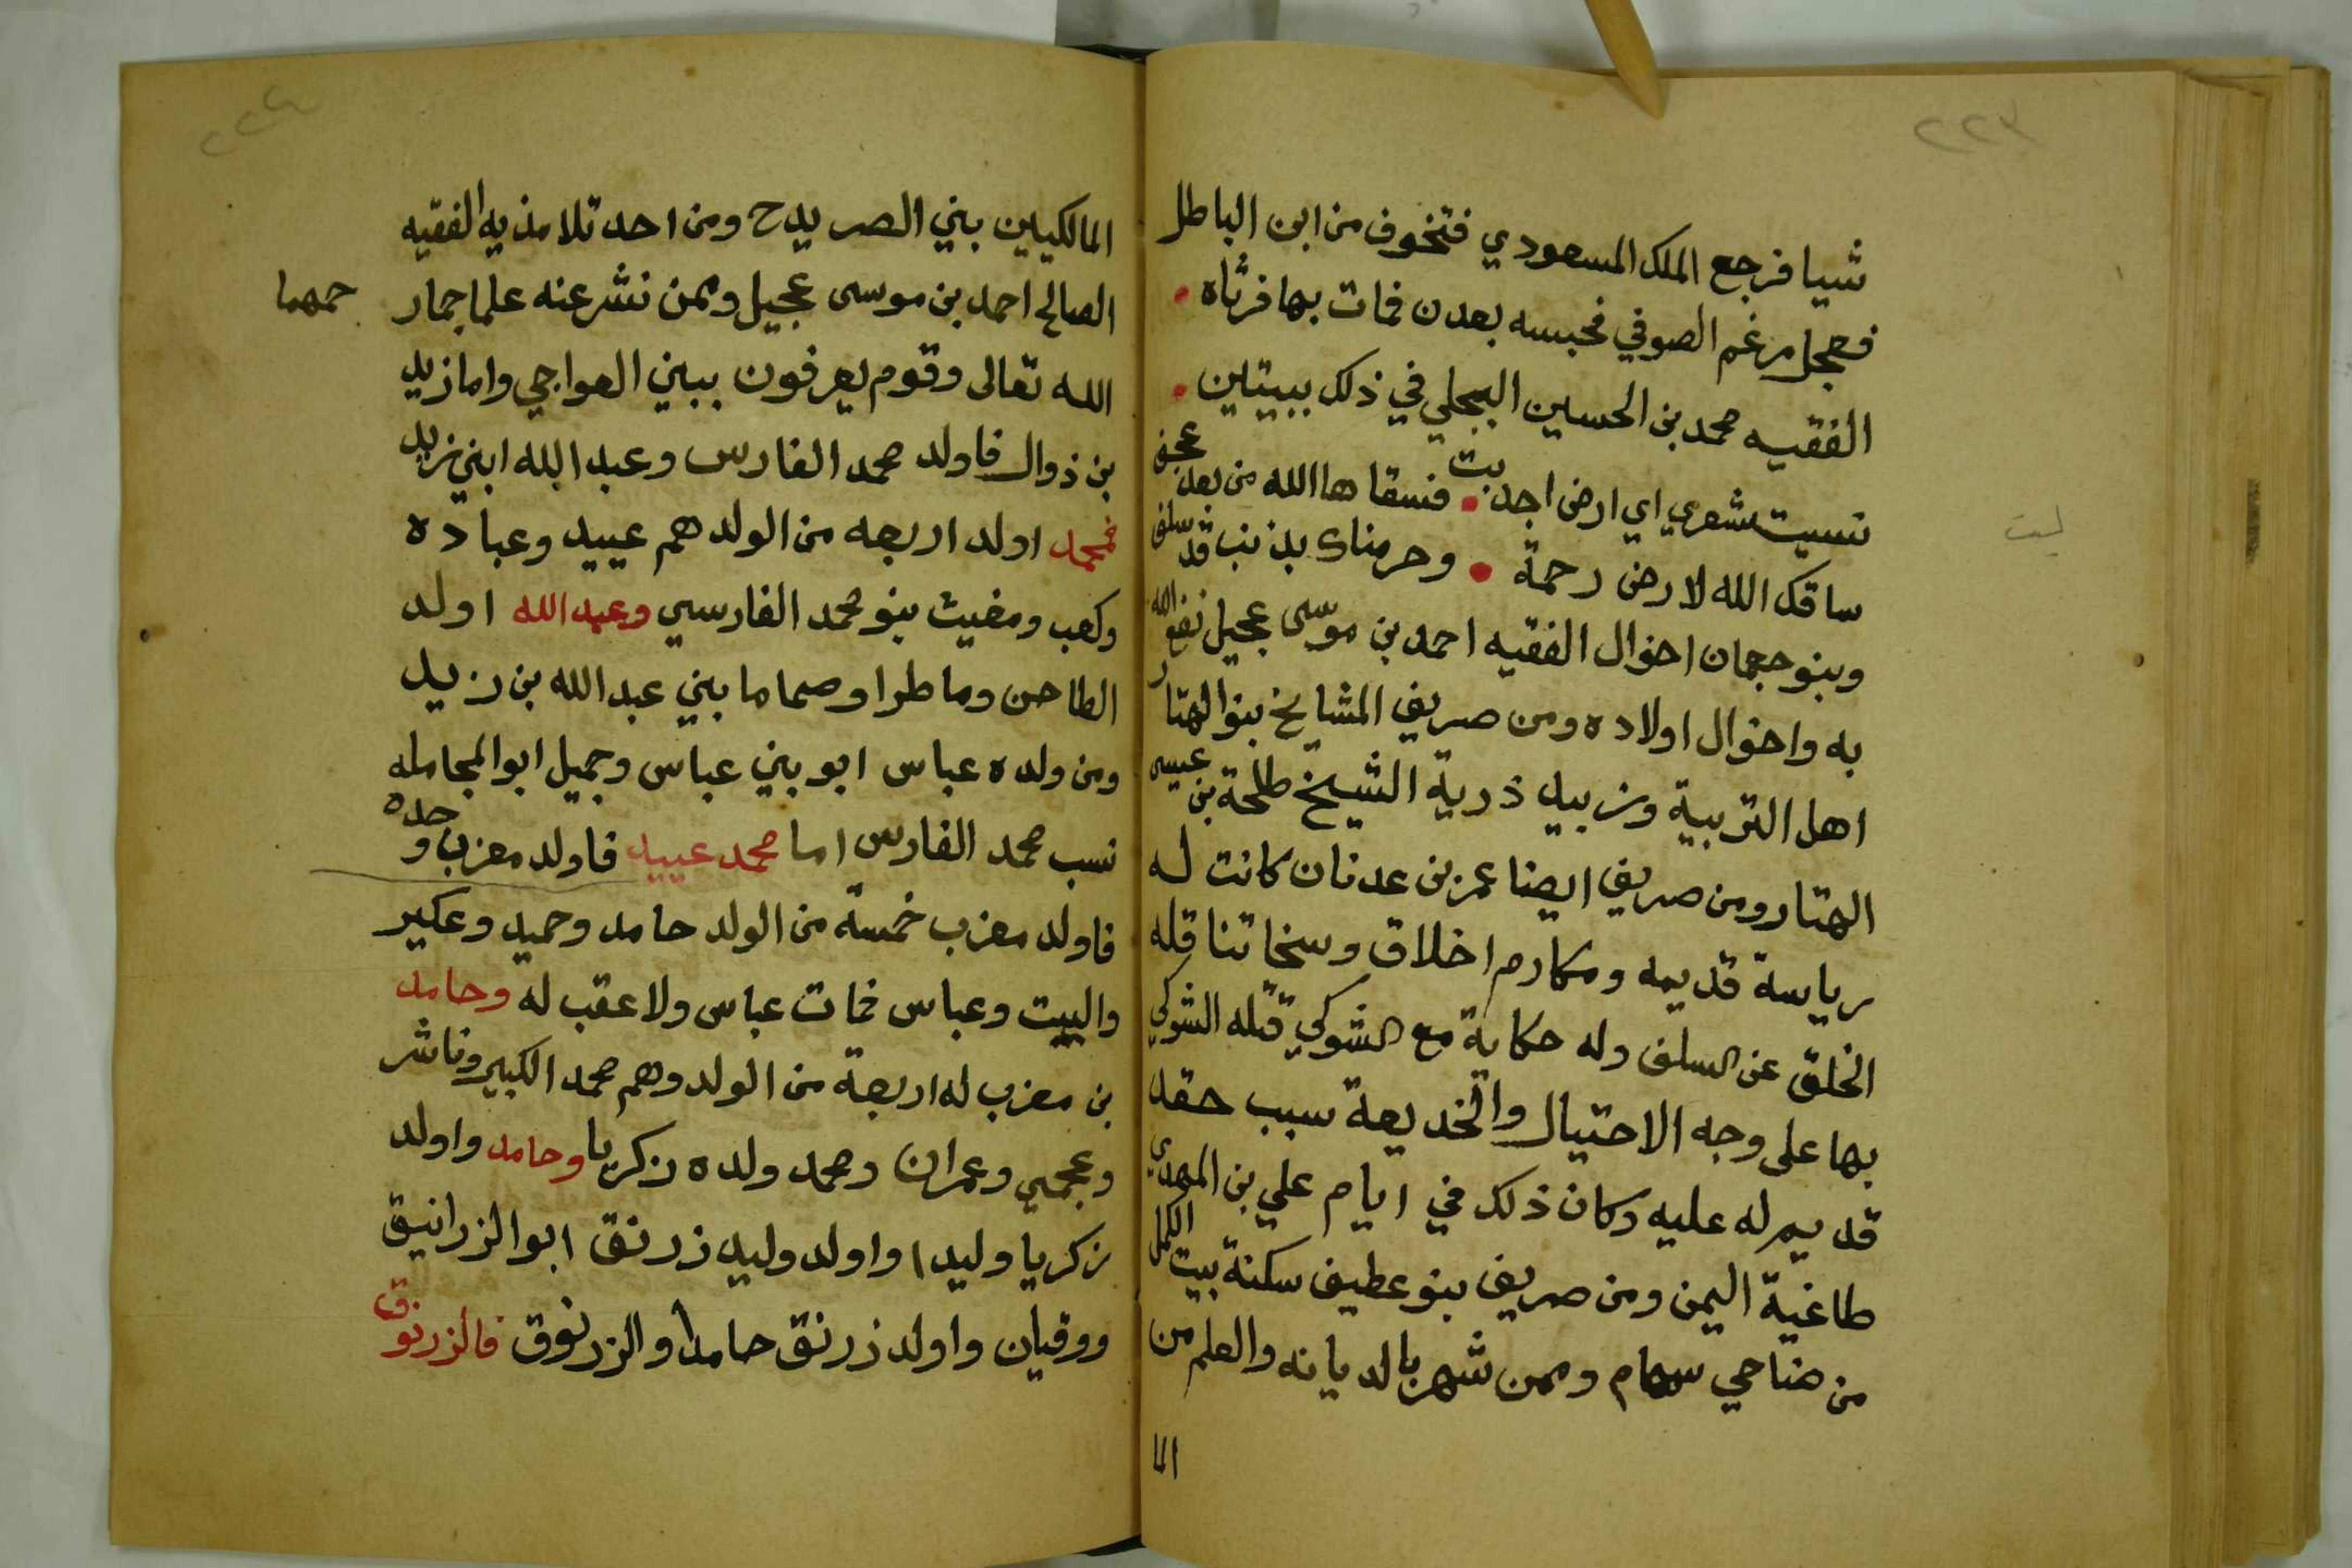 ٢٢٣
شيا فرجع الملك المسعودي فتخوف من ابن الباطل
فعجل مرغم الصوفي فحبسه بعدن فمات بها فرثاه
الفقيه محمد بن الحسين البجلي في ذلك ببيتين
تسيت شعري اي ارض اجدبت فسقاها الله من بعد عجف
ليت
ساقك الله لارض رحمة وحرمناك بذنب قد سلف
وبنو حجمان اخوال الفقيه احمد بن موسى عجيل نفع الله
به واخوال اولاده ومن صريف المشايخ بنو الهتار
اهل التربية وزبيد ذرية الشيخ طلحة بن عيسى
الهتار ومن صريف ايضا عمر بن عدنان كانت له
رياسة قديمه ومكارم اخلاق وسخا تناقله
الخلق عن السلف وله حكاية مع الشوكي قتله الشوكي
بها على وجه الاحتيال والخديعة سبب حقد
قديم له عليه وكان ذلك في ايام علي بن المهدي
طاغية اليمن ومن صريف بنو عطيف سكنة بيت الكمل
من مناحي سهام وممن شهر بالديانه والعلم من
الما
٢٢٤
المالكيين بني الصريدح ومن احد تلامذيه الفقيه
الصالح احمد بن موسى عجيل وممن نشر عنه علما جمار حمهما
الله تعالى وقوم يعرفون ببني العواجي واما زيد
بن ذوال فاولد محمد الفارس وعبد الله ابني زيد
فمحمد اولد اربعه من الولد هم عبيد وعباده
وكعب ومغيث بنو محمد الفارسي وعبد الله اولد
الطاحن وماطرا وصماما بني عبد الله بن زيد
ومن ولده عباس ابو بني عباس وجميل ابو المجامله
نسب محمد الفارس اما محمد عبيد فاولد معزب وحده
فاولد معزب خمسة من الولد حامد وحميد وعكير
والبيت وعباس فمات عباس ولا عقب له وحامد
بن معزب له اربعة من الولد وهم محمد الكبير وناشر
وعجمي وعمران ومحمد ولده زكريا وحامد واولد
زكريا وليدا واولد وليد زرنق ابو الزرانيق
ووقيان واولد زرنق حامدا والزرنوق فالزرنوق